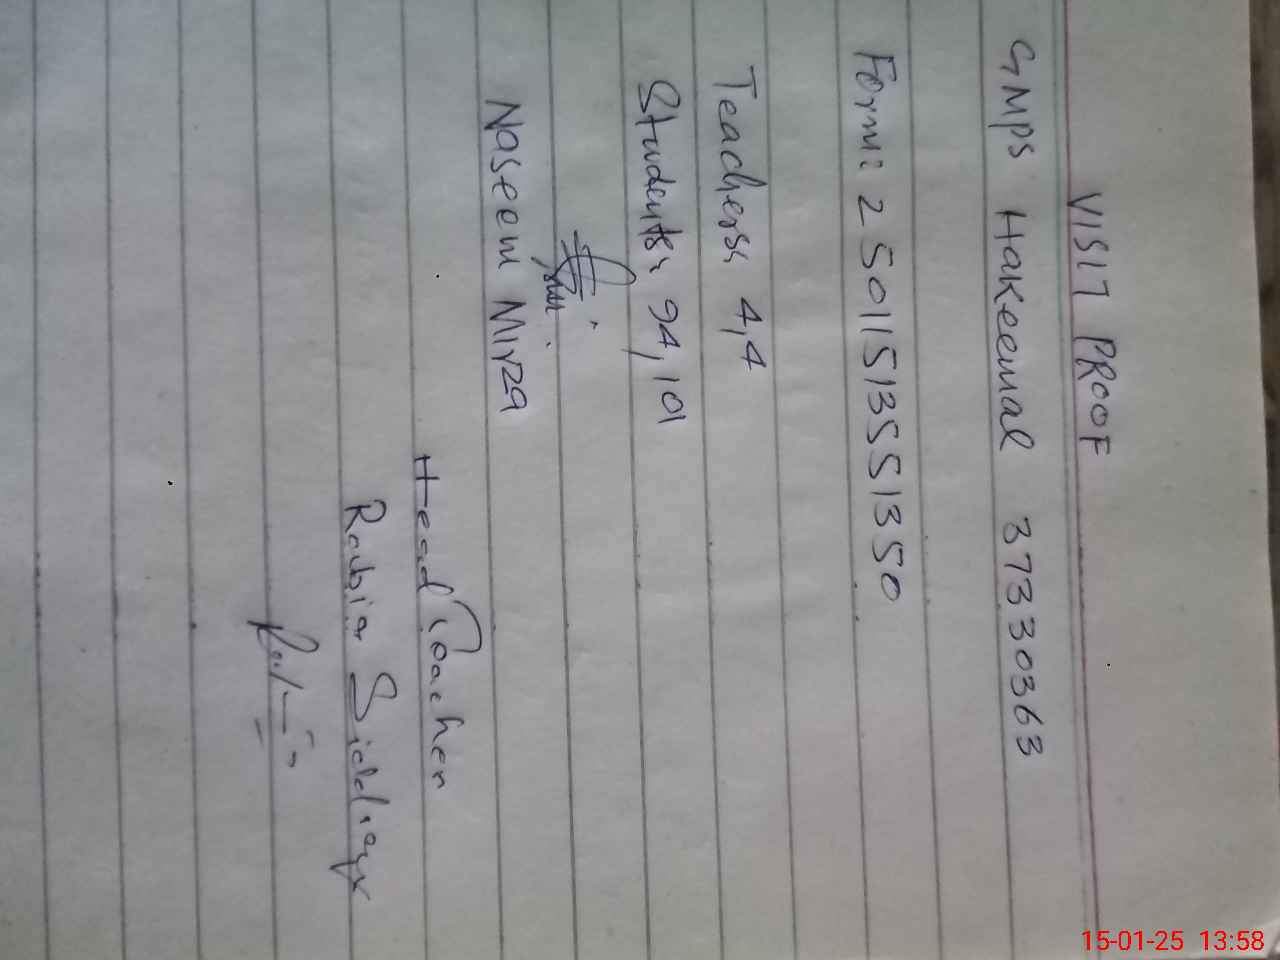 VISIT PROOF
GMPS Hakeemal 37330363
Form: 250115135551350
Teachers: 4,4
Students: 94, 101
Naseem Mirza
Head Teacher
Rabia Siddiqa
15-01-25 13:58